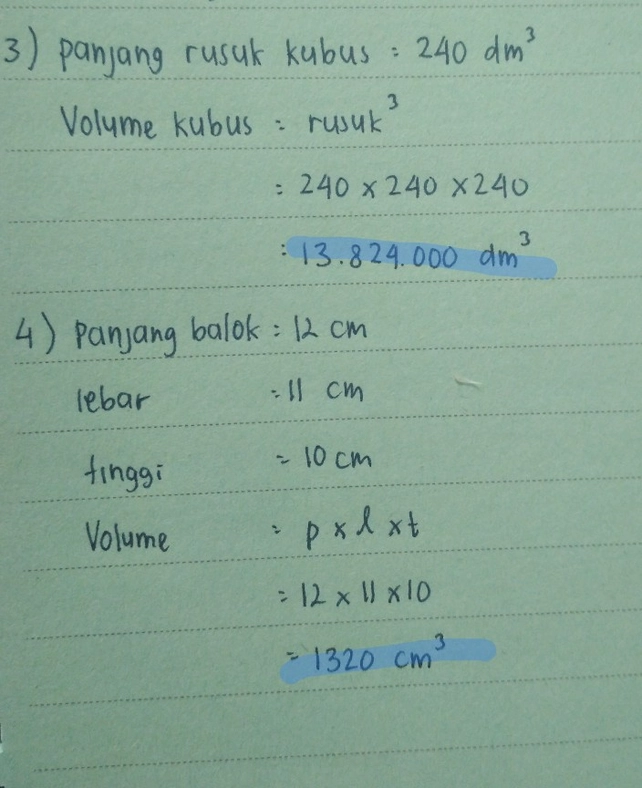 3) panjang rusuk kubus = 240 dm³
Volume kubus = rusuk³
= 240 × 240 × 240
= 13.824.000 dm³
4) panjang balok = 12 cm
lebar = 11 cm
tinggi = 10 cm
Volume = p × l × t
= 12 × 11 × 10
= 1320 cm³